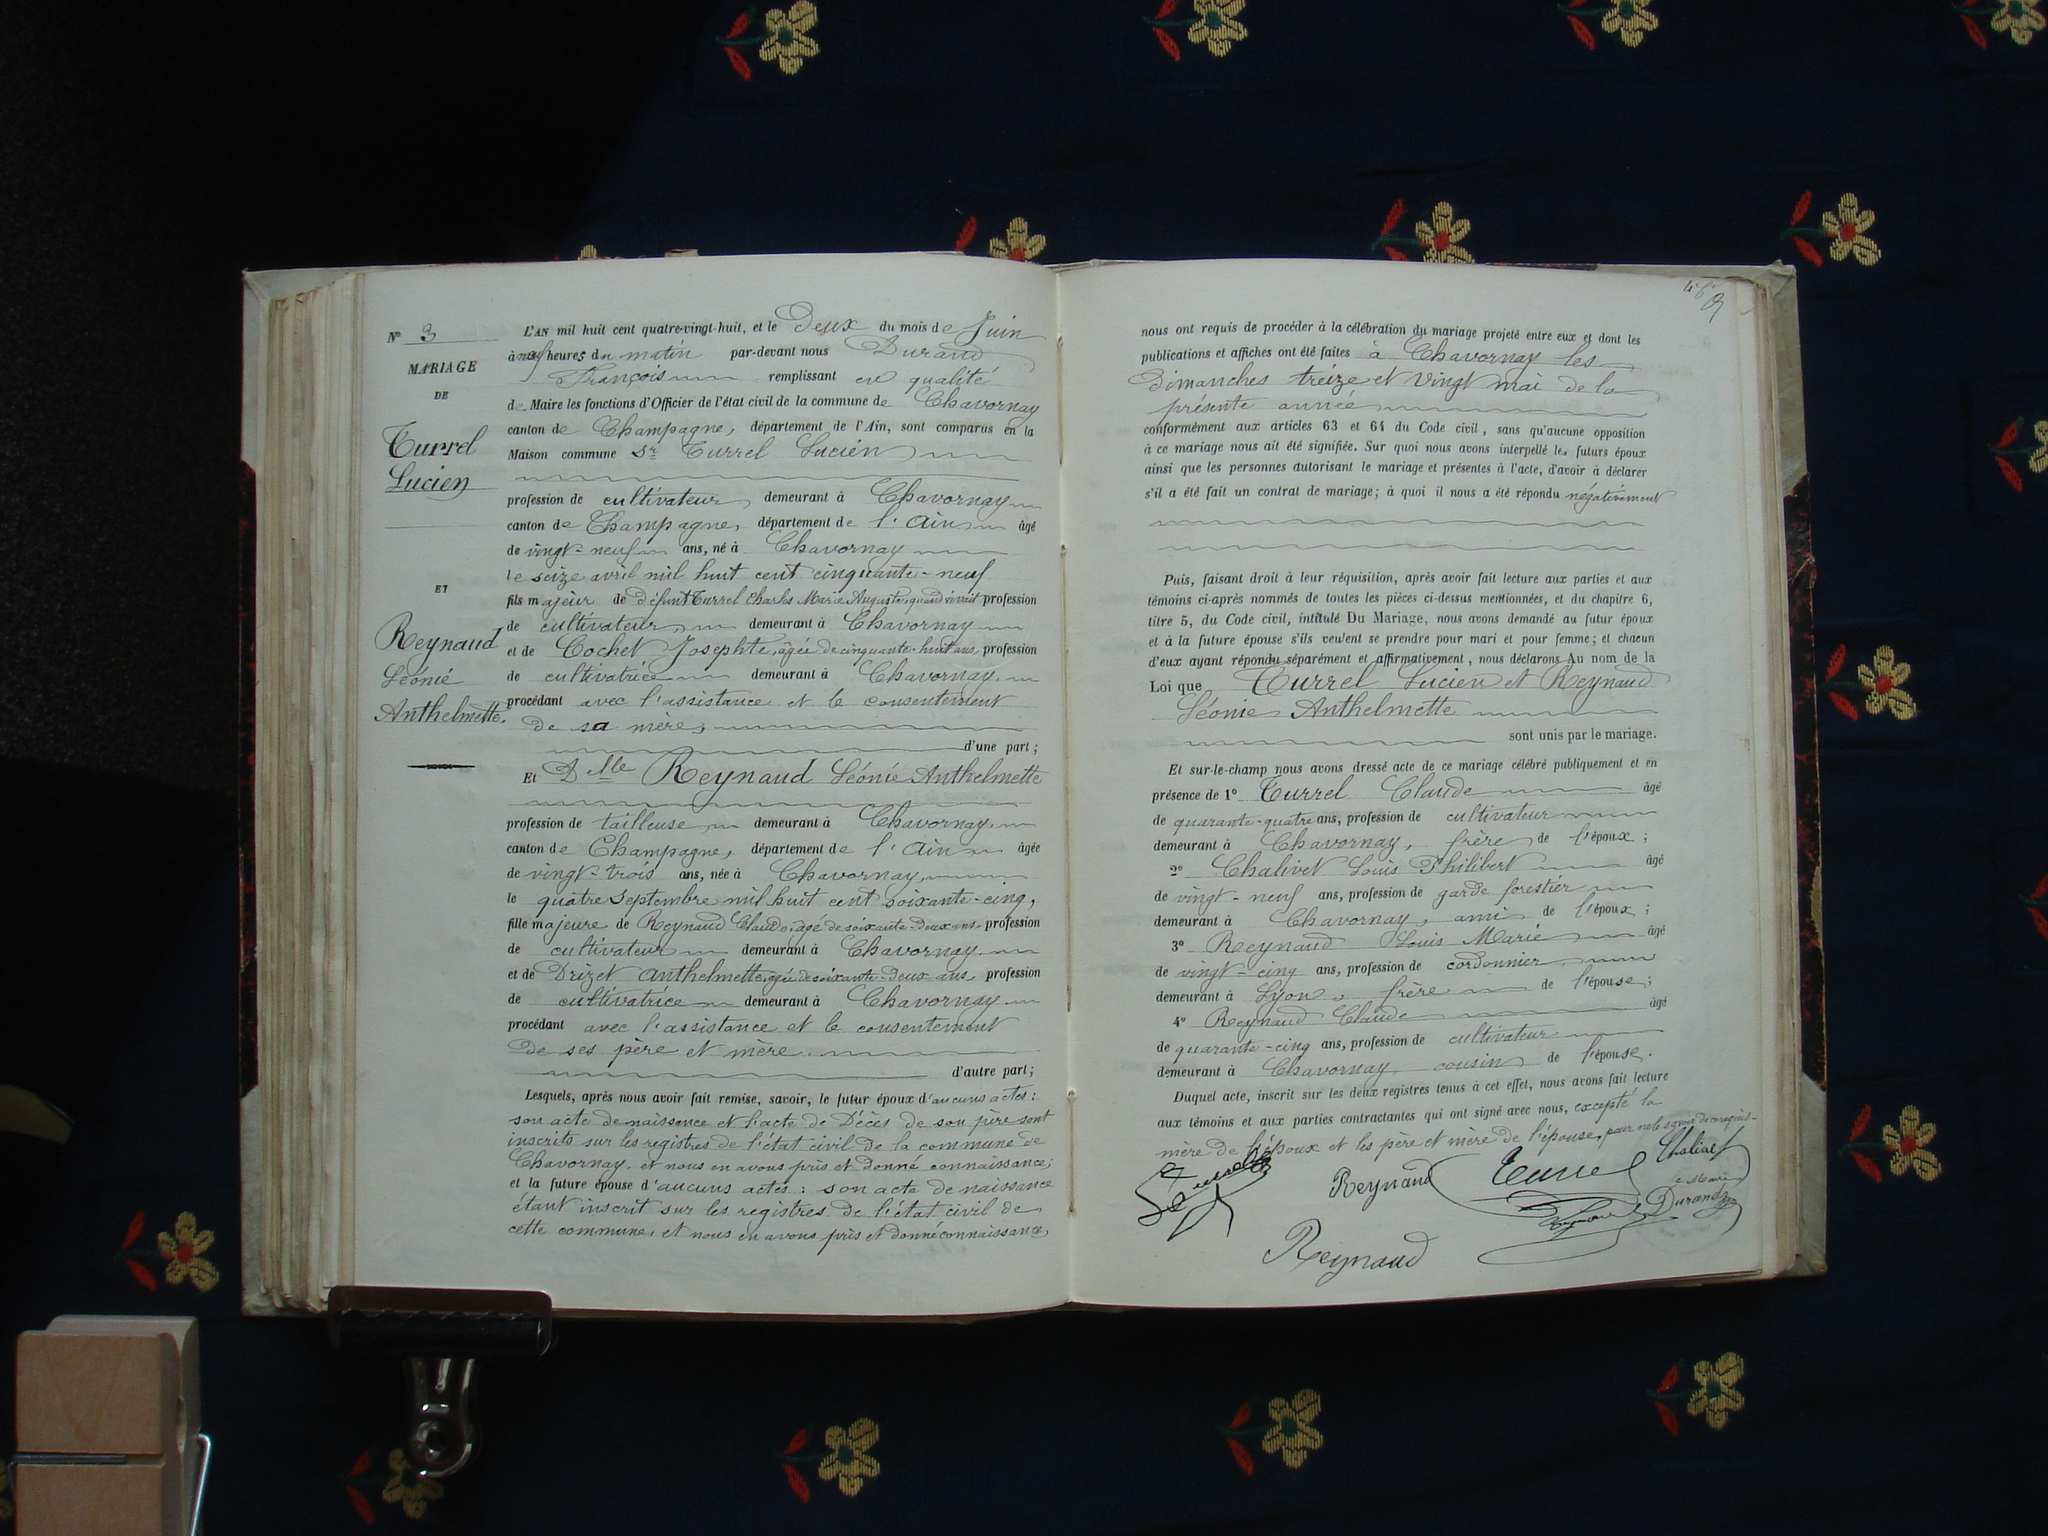 Nº 3
MARIAGE
DE
Turrel
Lucien
ET
Reynaud
Léonie
Anthelmette.
L'AN mil huit cent quatre-vingt-huit, et le Deux du mois de Juin
à neuf heures du matin par-devant nous Durand
François remplissant en qualité
de Maire les fonctions d'Officier de l'état civil de la commune de Chavornay
canton de Champagne, département de l'Ain, sont comparus en la
Maison commune Sr Turrel Lucien
profession de cultivateur demeurant à Chavornay
canton de Champagne, département de l'Ain âgé
de vingt-neuf ans, né à Chavornay
le seize avril mil huit cent cinquante-neuf
fils majeur de défunt Turrel Charles Marie Auguste, quand vivait profession
de cultivateur demeurant à Chavornay
et de Cochet Josephte, âgée de cinquante-huit ans, profession
de cultivatrice demeurant à Chavornay
procédant avec l'assistance et le consentement
de sa mère,
d'une part ;
Et Delle Reynaud Léonie Anthelmette
profession de tailleuse demeurant à Chavornay
canton de Champagne, département de l'Ain âgée
de vingt-trois ans, née à Chavornay,
le quatre septembre mil huit cent soixante-cinq,
fille majeure de Reynaud Claude, âgé de soixante-deux ans profession
de cultivateur demeurant à Chavornay
et de Drizet Anthelmette, âgée de soixante-deux ans, profession
de cultivatrice demeurant à Chavornay
procédant avec l'assistance et le consentement
de ses père et mère.
d'autre part ;
Lesquels, après nous avoir fait remise, savoir, le futur époux d'aucuns actes :
son acte de naissance et l'acte de Décès de son père sont
inscrits sur les registres de l'état civil de la commune de
Chavornay. et nous en avons pris et donné connaissance ;
et la future épouse d'aucuns actes : son acte de naissance
étant inscrit sur les registres de l'état civil de
cette commune, et nous en avons pris et donné connaissance,
nous ont requis de procéder à la célébration du mariage projeté entre eux et dont les
publications et affiches ont été faites à Chavornay les
dimanches treize et vingt mai de la
présente année
conformément aux articles 63 et 64 du Code civil, sans qu'aucune opposition
à ce mariage nous ait été signifiée. Sur quoi nous avons interpellé les futurs époux
ainsi que les personnes autorisant le mariage et présentes à l'acte, d'avoir à déclarer
s'il a été fait un contrat de mariage ; à quoi il nous a été répondu négativement
Puis, faisant droit à leur réquisition, après avoir fait lecture aux parties et aux
témoins ci-après nommés de toutes les pièces ci-dessus mentionnées, et du chapitre 6,
titre 5, du Code civil, intitulé Du Mariage, nous avons demandé au futur époux
et à la future épouse s'ils veulent se prendre pour mari et pour femme ; et chacun
d'eux ayant répondu séparément et affirmativement, nous déclarons Au nom de la
Loi que Turrel Lucien et Reynaud
Léonie Anthelmette
sont unis par le mariage.
Et sur-le-champ nous avons dressé acte de ce mariage célébré publiquement et en
présence de 1º Turrel Claude âgé
de quarante-quatre ans, profession de cultivateur
demeurant à Chavornay, frère de l'époux ;
2º Chalivet Louis Philibert âgé
de vingt-neuf ans, profession de garde forestier
demeurant à Chavornay, ami de l'époux ;
3º Reynaud Louis Marie âgé
de vingt-cinq ans, profession de cordonnier
demeurant à Lyon, frère de l'épouse ;
4º Reynaud Claude âgé
de quarante-cinq ans, profession de cultivateur
demeurant à Chavornay cousin de l'épouse.
Duquel acte, inscrit sur les deux registres tenus à cet effet, nous avons fait lecture
aux témoins et aux parties contractantes qui ont signé avec nous, excepté la
mère de l'époux et les père et mère de l'épouse, pour ne le savoir de ce requis
Reynaud Turrel Chalivet
Le Maire
Durand
Reynaud